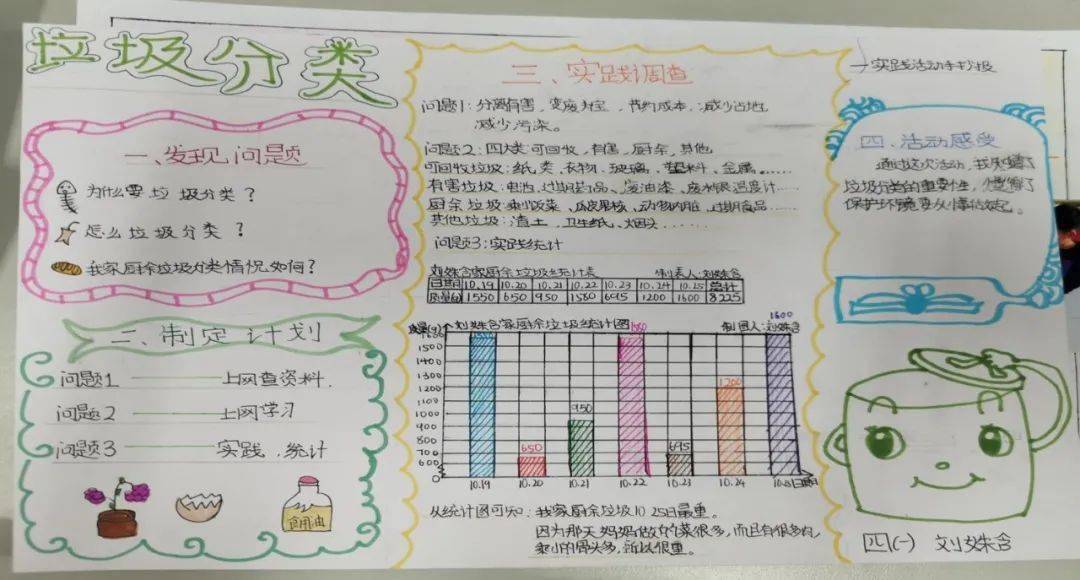 垃圾分类
一、发现问题
为什么要垃圾分类？
怎么垃圾分类？
我家厨余垃圾分类情况如何？
二、制定计划
问题1 上网查资料.
问题2 上网学习
问题3 实践、统计
食用油
三、实践调查
问题1: 分离有害、变废为宝、节约成本、减少占地
减少污染。
问题2: 四大类:可回收、有害、厨余、其他
可回收垃圾:纸类、衣物、玻璃、塑料、金属……
有害垃圾:电池、过期药品、废油漆、废水银温度计……
厨余垃圾:剩饭菜、瓜皮果核、动物内脏、过期食品……
其他垃圾:渣土、卫生纸、烟头……
问题3:实践统计
刘姝含家厨余垃圾统计表 制表人:刘姝含
日期 10.19 10.20 10.21 10.22 10.23 10.24 10.25 总计
质量(g) 1550 650 950 1580 695 1200 1600 8225
质量(g) 刘姝含家厨余垃圾统计图 制图人:刘姝含
1600
1500
1400
1300
1200
1100
1000
900
800
700
600
0
650
950
1580
695
1200
1600
10.19 10.20 10.21 10.22 10.23 10.24 10.25 日期
从统计图可知:我家厨余垃圾10.25日最重。
因为那天妈妈做的菜很多,而且有很多肉,
剩下的骨头多,所以很重。
实践活动手抄报
四、活动感受
通过这次活动,我明白了
垃圾分类的重要性,懂得了
保护环境要从小事做起。
四(一) 刘姝含